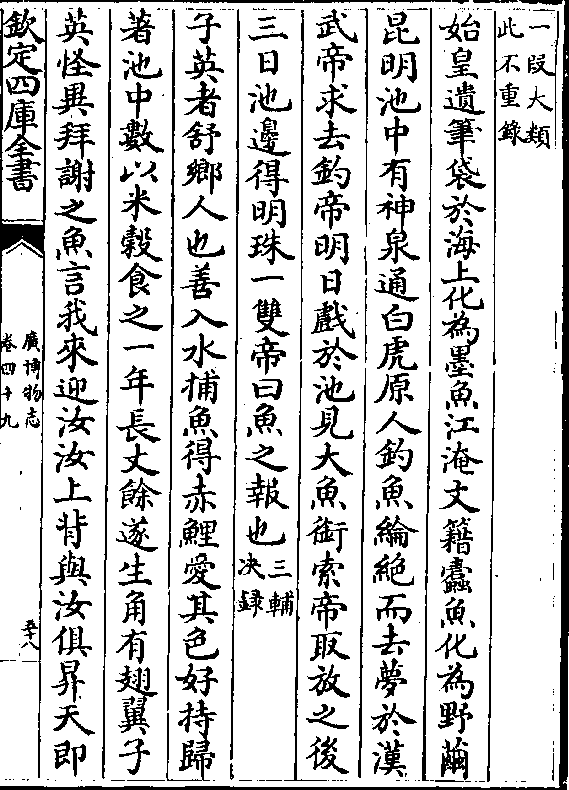 一段大類
此不重錄
始皇遺筆袋於海上化為墨魚江淹文籍蠹魚化為野繭
昆明池中有神泉通白虎原人釣魚綸絶而去夢於漢
武帝求去釣帝明日戲於池見大魚銜索帝取放之後
三日池邊得明珠一雙帝曰魚之報也三輔决録
子英者舒鄉人也善入水捕魚得赤鯉愛其色好持歸
著池中數以米穀食之一年長丈餘遂生角有翅翼子
英怪異拜謝之魚言我來迎汝汝上背與汝俱昇天即
欽定四庫全書
廣博物志
卷四十九
五十八